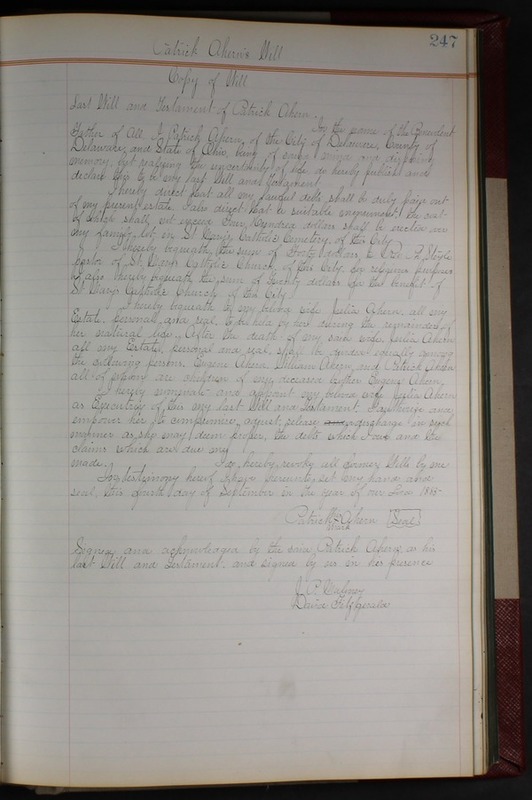 247
Patrick Ahern's Will
Copy of Will
Last Will and Testament of Patrick Ahern.
In the name of the Benevolent
Father of All. I Patrick Ahern, of the City of Delaware, County of
Delaware, and State of Ohio, being of sound mind and disposing
memory, but realizing the uncertainty of life do hereby publish and
declare this to be my last Will and Testament.
I hereby direct that all my lawful debts shall be duly paid out
of my present estate. I also direct that a suitable monument the cost
of which shall not exceed Four Hundred dollars shall be erected on
my family lot in St. Mary's Catholic Cemetery, of this City.
I hereby bequeath, the sum of Forty dollars, to Rev.
pastor of St. Mary's Catholic Church, of this City, for requiem purposes
I also hereby bequeath the sum of Twenty dollars for the benefit of
St. Mary's Catholic Church of this City.
I hereby bequeath to my belove wife Julia Ahern, all my
Estate, personal and real, to be held by her during the remainder of
her natural life. After the death of my said wife Julia Ahern
all my Estate, personal and real, shall be divided equally among
the following persons, Eugene Ahern, William Ahern, and Patrick Ahern
all of whom are children of my deceased brother Eugene Ahern,
I hereby nominate and appoint my belove wife Julia Ahern
as Executrix of this my last Will and Testament. I authorize and
empower her to compromise, adjust, release and discharge in such
manner as she may deem proper, the debts which I owe and the
claims which are due my
made. I do hereby revoke all former Wills by me
In testimony hereof I have hereunto set my hand and
seal, this day of September in the year of our Lord
Patrick his mark Ahern (Seal)
Signed and acknowledged by the said Patrick Ahern as his
last Will and Testament. and signed by us in her presence
J. P. Mahoney
David Fitzgerald